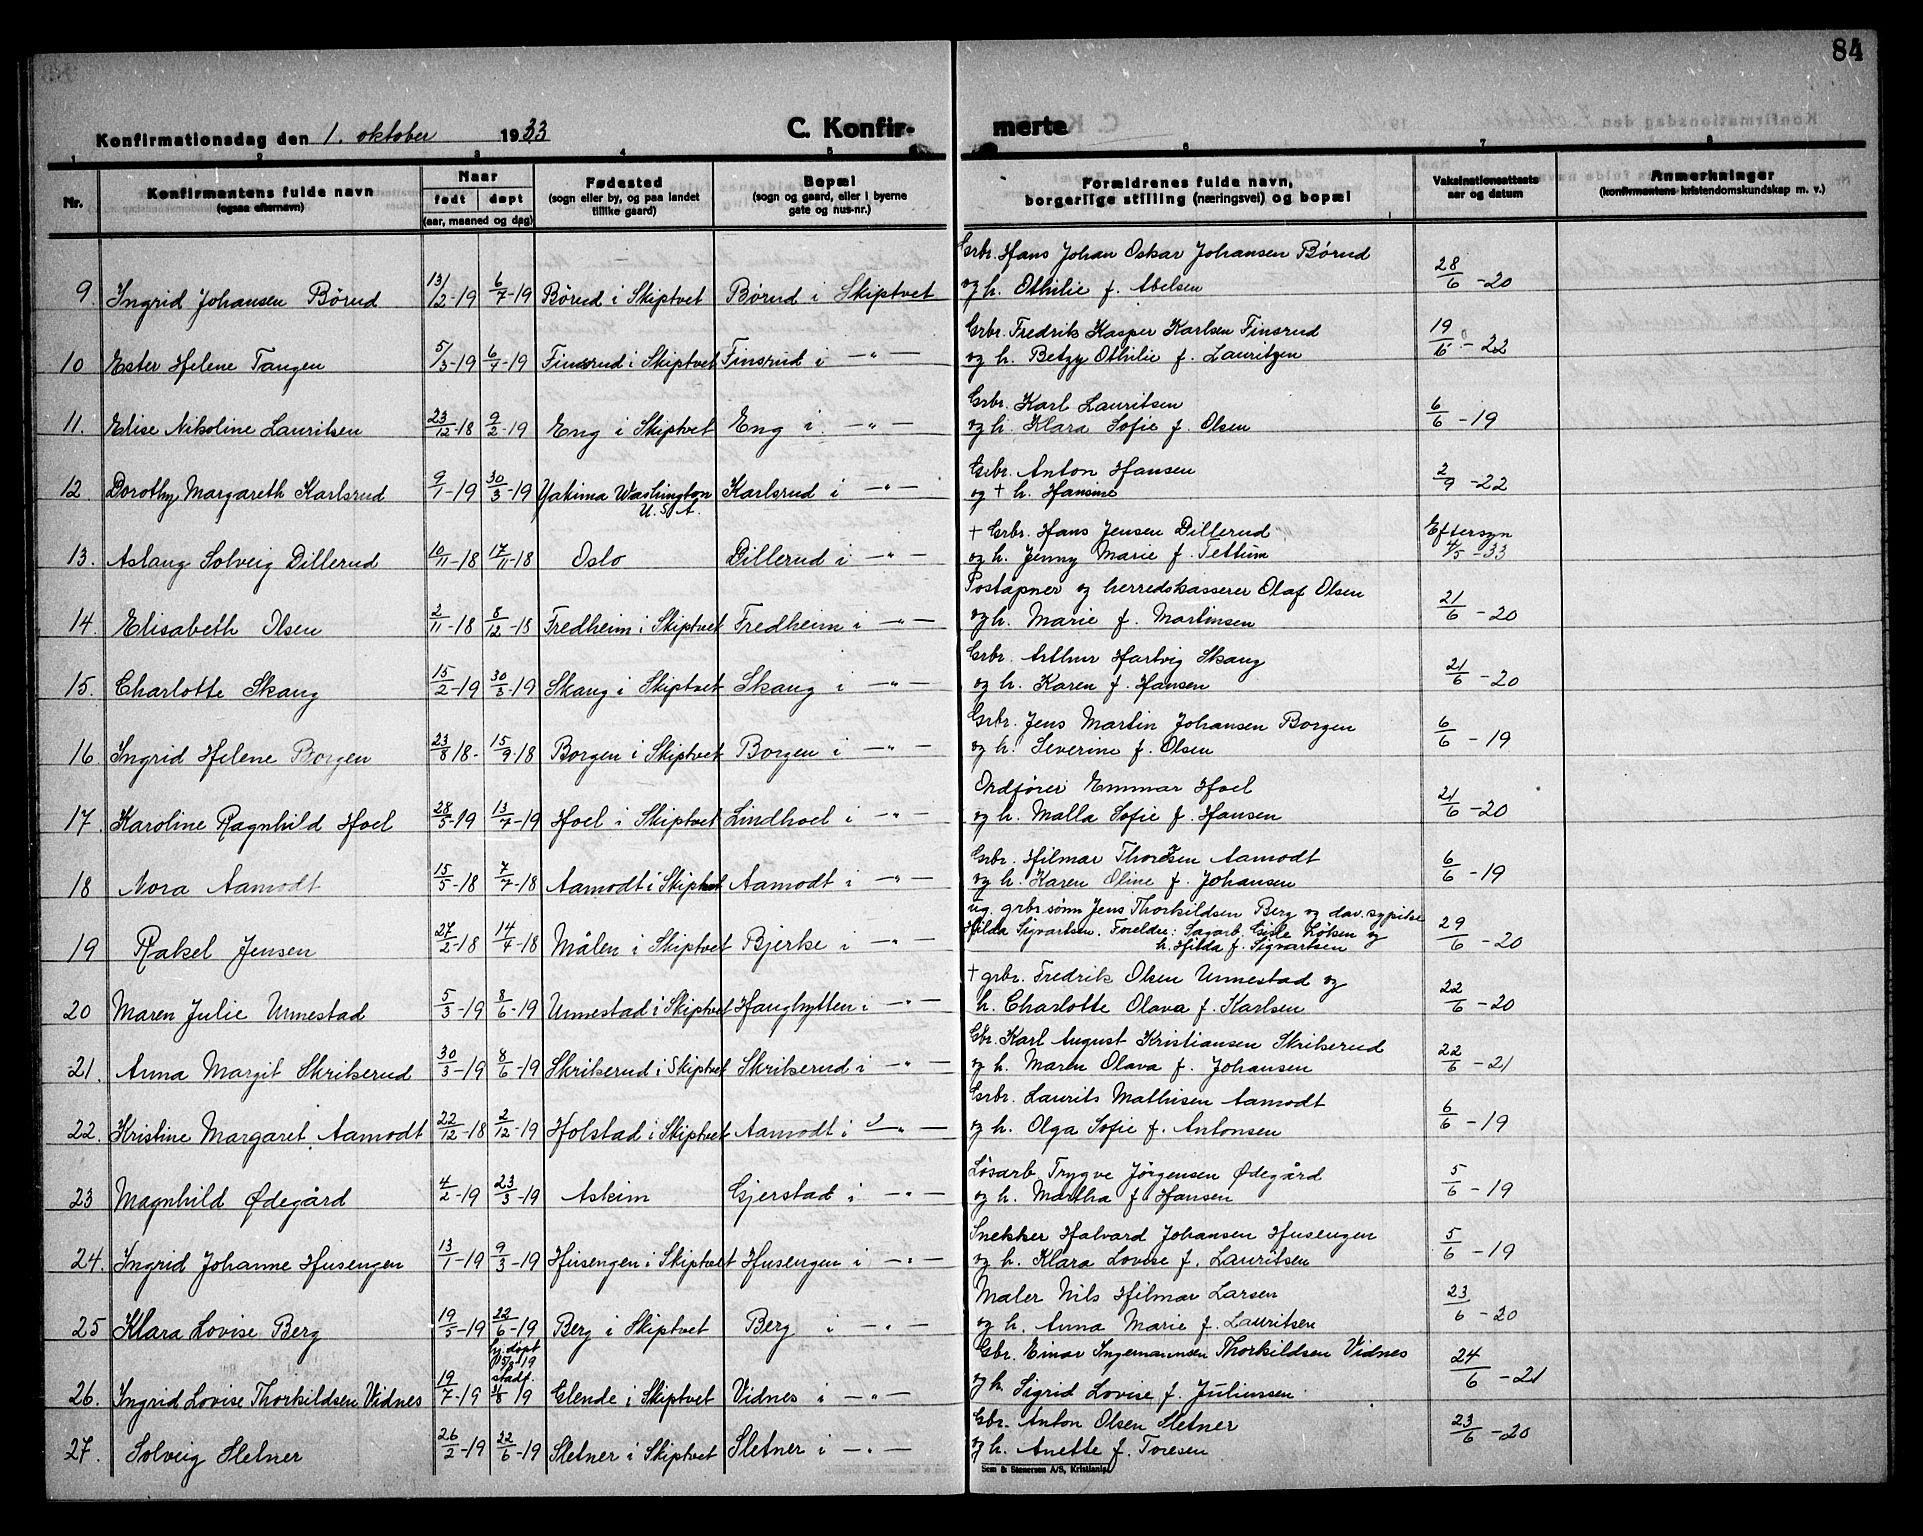 84
Konfirmationsdag den 1. oktober 1933
C. Konfir- merte
1 2 3 4 5 6 7 8
Nr. Konfirmantens fulde navn (ogsaa efternavn) Naar født døpt (aar, maaned og dag) Fødested (sogn eller by, og paa landet tillike gaard) Bopæl (sogn og gaard, eller i byerne gate og hus-nr.) Forældrenes fulde navn, borgerlige stilling (næringsvei) og bopæl Vaksinationsattests aar og datum Anmerkninger (konfirmantens kristendomskundskap m. v.)
Grbr. Hans Johan Oskar Johansen Børud
9. Ingrid Johansen Børud 13/12-19 6/7-19 Børud i Skiptvet Børud i Skiptvet og h. Othilie f. Abelsen 28/6-20
Grbr. Fredrik Kasper Karlsen Finsrud
10 Ester Helene Tangen 5/3-19 6/7-19 Finsrud i Skiptvet Finsrud i —"— og h. Betzy Othilie f. Lauritzen 19/6-22
Grbr. Karl Lauritsen
11. Elise Nikoline Lauritsen 23/12-18 9/2-19 Eng i Skiptvet Eng i —"— og h. Klara Sofie f. Olsen 6/6-19
Grbr. Anton Hansen
12. Dorothy Margareth Karlsrud 9/1-19 30/3-19 Yakima Washington U.S.A. Karlsrud i —"— og + h. Hansine 2/9-22
+ Grbr. Hans Jensen Dillerud
13. Aslaug Solveig Dillerud 10/11-18 17/11-18 Oslo Dillerud i —"— og h. Jenny Marie f. Tettum Eftersyn 4/5-33
Postapner og herredskasserer Olaf Olsen
14. Elisabeth Olsen 2/11-18 8/12-18 Fredheim i Skiptvet Fredheim i —"— og h. Marie f. Martinsen 21/6-20
Grbr. Arthur Hartvig Skaug
15. Charlotte Skaug 15/2-19 30/3-19 Skaug i Skiptvet Skaug i —"— og h. Karen f. Hansen 21/6-20
Grbr. Jens Martin Johansen Borgen
16 Ingrid Helene Borgen 23/8 18- 15/9-18 Borgen i Skiptvet Borgen i —"— og h. Severine f. Olsen 6/6-19
Ordfører Emmar Hoel
17. Karoline Ragnhild Hoel 28/5-19 13/7-19 Hoel i Skiptvet Lindhoel i —"— og h. Malla Sofie f. Hansen 21/6-20
Grbr. Hilmar Thoresen Aamodt
18 Nora Aamodt 15/5-18 7/7-18 Aamodt i Skiptvet Aamodt i —"— og h. Karen Oline f. Johansen 6/6-19
ug. grbr.sønn Jens Thorkildsen Berg og dav. sypike
19 Rakel Jensen 27/2-18 14/4-18 Målen i Skiptvet Bjerke i —"— Hilda Sigvartsen. Foreldre: Sagarb. Gisle Løken og h. Hilda f. Sigvartsen 29/6-20
+ grbr. Fredrik Olsen Unnestad og
20 Maren Julie Unnestad 5/3-19 8/6-19 Unnestad i Skiptvet Haughytten i —"— h. Charlotte Olava f. Karlsen 22/6-20
Gbr. Karl August Kristiansen Skrikerud
21. Anna Margit Skrikerud 30/3-19 8/6-19 Skrikerud i Skiptvet Skrikerud i —"— og h. Maren Olava f. Johansen 22/6-21
Grbr. Laurits Mathisen Aamodt
22. Kristine Margaret Aamodt 22/12-18 2/12-19 Holstad i Skiptvet Aamodt i —"— og h. Olga Sofie f. Antonsen 6/6-19
Løsarb. Trygve Jørgensen Ødegård
23 Magnhild Ødegård 4/2-19 23/3-19 Askim Gjerstad i —"— og h. Martha f. Hansen 5/6-19
Snekker Halvard Johansen Husengen
24. Ingrid Johanne Husengen 13/1-19 9/3-19 Husengen i Skiptvet Husengen i —"— og h. Klara Lovise f. Lauritsen 5/6-19
Maler Nils Hilmar Larsen
25 Klara Lovise Berg 19/5-19 22/6-19 Berg i Skiptvet Berg i —"— og h. Anna Marie f. Lauritsen 23/6-20
hj.døpt 15/8 19 Gbr. Einar Ingemannsen Thorkildsen Vidnes
26. Ingrid Lovise Thorkildsen Vidnes 19/7-19 stadf. 31/8 19 Glende i Skiptvet Vidnes i —"— og h. Sigrid Lovise f. Juliussen 24/6-21
Gbr. Anton Olsen Sletner
27. Solveig Sletner 26/2-19 22/6-19 Sletner i Skiptvet Sletner i —"— og h. Anette f. Toresen 23/6-20
Sem & Stenersen A/S, Kristiania